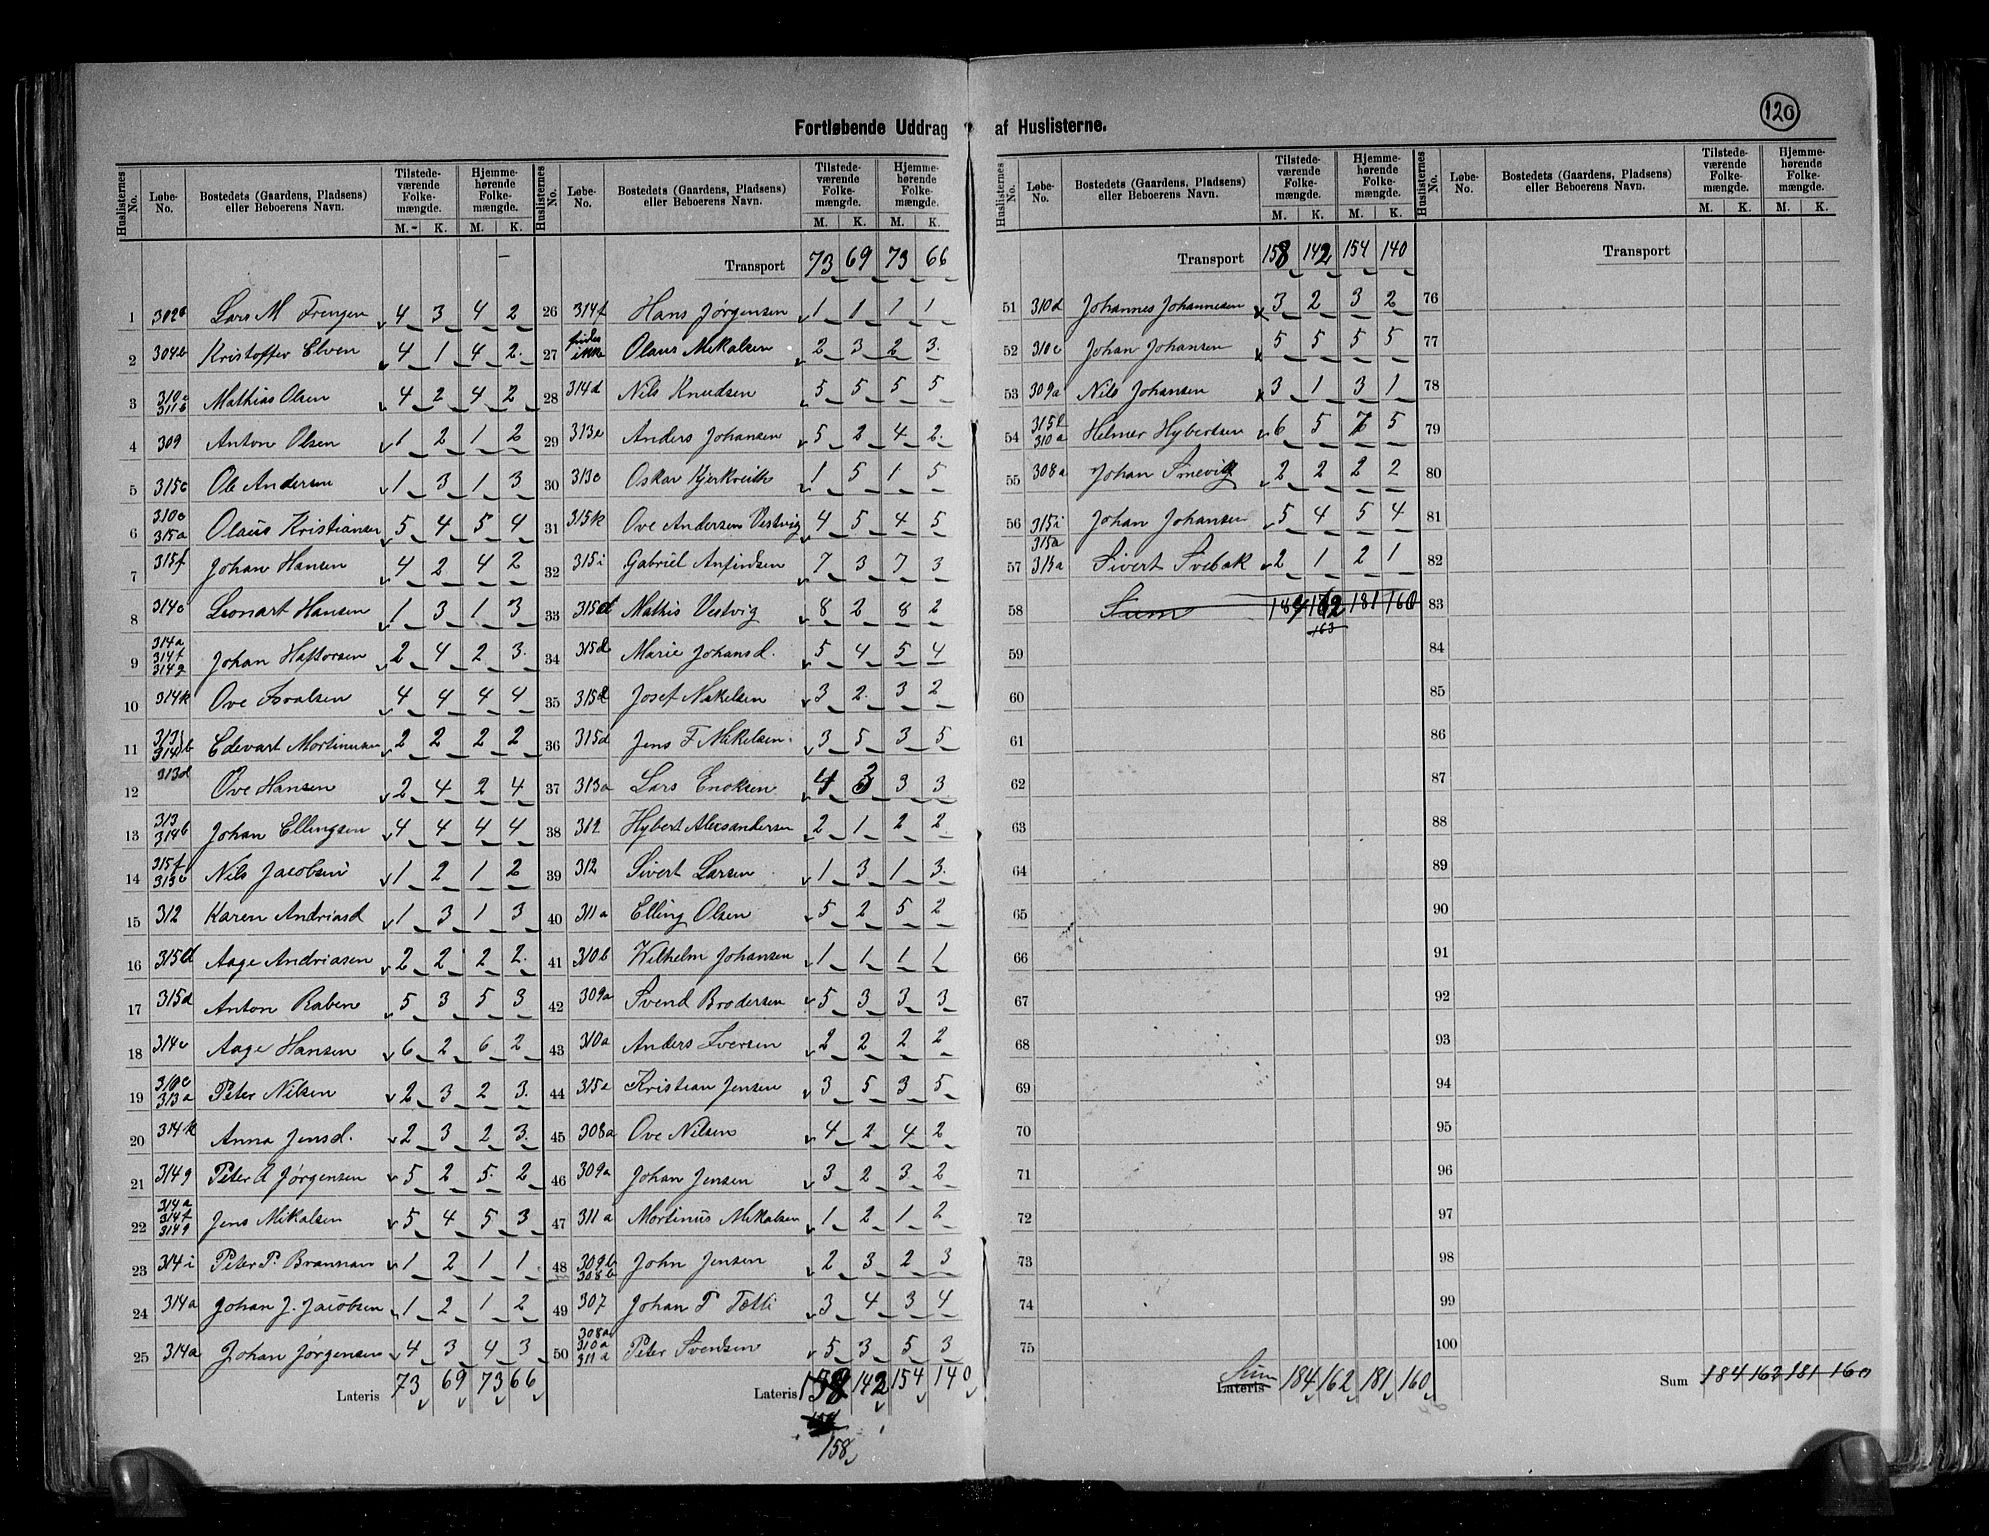 120
Fortløbende Uddrag af Huslisterne.
Huslisternes No. Løbe-No. Bostedets (Gaardens, Pladsens) eller Beboerens Navn. Tilstedeværende Folkemængde. M. K. Hjemmehørende Folkemængde. M. K.
1 302a Lars M Frengen 4 3 4 2
2 304b Kristoffer Elven 4 1 4 2
3 310c 311b Mathias Olsen 4 2 4 2
4 309 Anton Olsen 1 2 1 2
5 315c Ole Andersen 1 3 1 3
6 310c 315a Olaus Kristiansen 5 4 5 4
7 315f Johan Hansen 4 2 4 2
8 314c Leonart Hansen 1 3 1 3
9 314a 314f 314g Johan Haftorsen 2 4 2 3
10 314k Ove Ivralsen 4 4 4 4
11 314b Edevart Mortinusen 2 2 2 2
12 313d Ove Hansen 2 4 2 4
13 313 314b Johan Ellingsen 4 4 4 4
14 315f 313c Nils Jacobsen 1 2 1 2
15 312 Karen Andriasd 1 3 1 3
16 315d Aage Andriasen 2 2 2 2
17 315d Anton Raben 5 3 5 3
18 314c Aage Hansen 6 2 6 2
19 310c 313a Peter Nilsen 2 3 2 3
20 314k Anna Jensd. 2 3 2 3
21 314g Peter A Jørgensen 5 2 5 2
22 314a 314f 314g Jens Mikalsen 5 4 5 3
23 314i Peter P. Brannan 1 2 1 1
24 314a Johan J. Jacobsen 1 2 1 2
25 314a Johan Jørgensen 4 3 4 3
Lateris 73 69 73 66
Huslisternes No. Løbe-No. Bostedets (Gaardens, Pladsens) eller Beboerens Navn. Tilstedeværende Folkemængde. M. K. Hjemmehørende Folkemængde. M. K.
Transport 73 69 73 66
26 314f Hans Jørgensen 1 1 1 1
27 findes ikke Olaus Mikalsen 2 3 2 3
28 314d Nils Knudsen 5 5 5 5
29 313e Anders Johansen 5 2 4 2
30 313c Oskar Kjerkreith 1 5 1 5
31 315k Ove Andersen Vestvig 4 5 4 5
32 315i Gabriel Anfindsen 7 3 7 3
33 315d Mathis Vestvig 8 2 8 2
34 315d Marie Johansd. 5 4 5 4
35 315d Josef Mikelsen 3 2 3 2
36 315d Jens F Mikelsen 3 5 3 5
37 313a Lars Enoksen 4 3 3 3
38 312 Hybert Alexsandersen 2 1 2 2
39 312 Sivert Larsen 1 3 1 3
40 311a Elling Olsen 5 2 5 2
41 310b Wilhelm Johansen 1 1 1 1
42 309a Svend Brodersen 5 3 3 3
43 310a Anders Iversen 2 2 2 2
44 315a Kristian Jensen 3 5 3 5
45 308a Ove Nilsen 4 2 4 2
46 309a Johan Jensen 3 2 3 2
47 311a Mortinus Mikalsen 1 2 1 2
48 309b 308b John Jensen 2 3 2 3
49 307 Johan P Tetli 3 4 3 4
50 308a 310a 311a Peter Svensen 5 3 5 3
Lateris 158 142 154 140
158
Huslisternes No. Løbe-No. Bostedets (Gaardens, Pladsens) eller Beboerens Navn. Tilstedeværende Folkemængde. M. K. Hjemmehørende Folkemængde. M. K.
Transport 158 142 154 140
51 310d Johannes Johannesen 3 2 3 2
52 310c Johan Johansen 5 5 5 5
53 309a Nils Johansen 3 1 3 1
54 315l 310a Helmer Hybertsen 6 5 7 5
55 308a Johan Smevik 2 2 2 2
56 315i Johan Johansen 5 4 5 4
57 315a 313a Sivert Svebak 2 1 2 1
58 Sum 184 162 181 160
163
59
60
61
62
63
64
65
66
67
68
69
70
71
72
73
74
75
Sum Lateris 184 162 181 160
Huslisternes No. Løbe-No. Bostedets (Gaardens, Pladsens) eller Beboerens Navn. Tilstedeværende Folkemængde. M. K. Hjemmehørende Folkemængde. M. K.
Transport
76
77
78
79
80
81
82
83
84
85
86
87
88
89
90
91
92
93
94
95
96
97
98
99
100
Sum 184 162 181 160